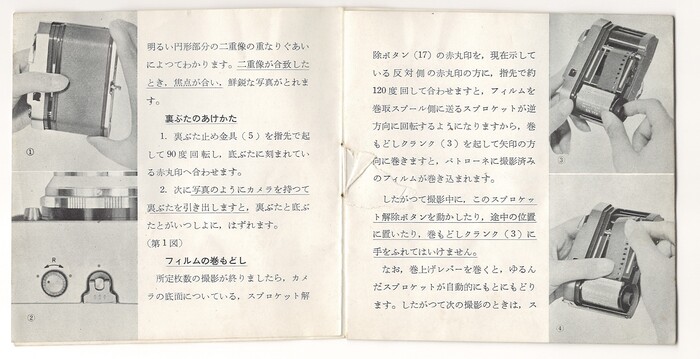 明るい円形部分の二重像の重なりぐあい
によつてわかります。二重像が合致した
とき、焦点が合い、鮮鋭な写真がとれま
す。
裏ぶたのあけかた
1. 裏ぶた止め金具(5)を指先で起
して90度回転し、底ぶたに刻まれてい
る赤丸印へ合わせます。
2. 次に写真のようにカメラを持つて
裏ぶたを引き出しますと、裏ぶたと底ぶ
たとがいつしよに、はずれます。
(第1図)
フィルムの巻もどし
所定枚数の撮影が終りましたら、カメ
ラの底面についている、スプロケット解
①
R
②
除ボタン(17)の赤丸印を、現在示して
いる反対側の赤丸印の方に、指先で約
120度回して合わせますと、フィルムを
巻取スプール側に送るスプロケットが逆
方向に回転するようになりますから、巻
もどしクランク(3)を起して矢印の方
向に巻きますと、パトローネに撮影済み
のフィルムが巻き込まれます。
したがつて撮影中に、このスプロケッ
ト解除ボタンを動かしたり、途中の位置
に置いたり、巻もどしクランク(3)に
手をふれてはいけません。
なお、巻上げレバーを巻くと、ゆるん
だスプロケットが自動的にもとにもどり
ます。したがつて次の撮影のときは、ス
3
④